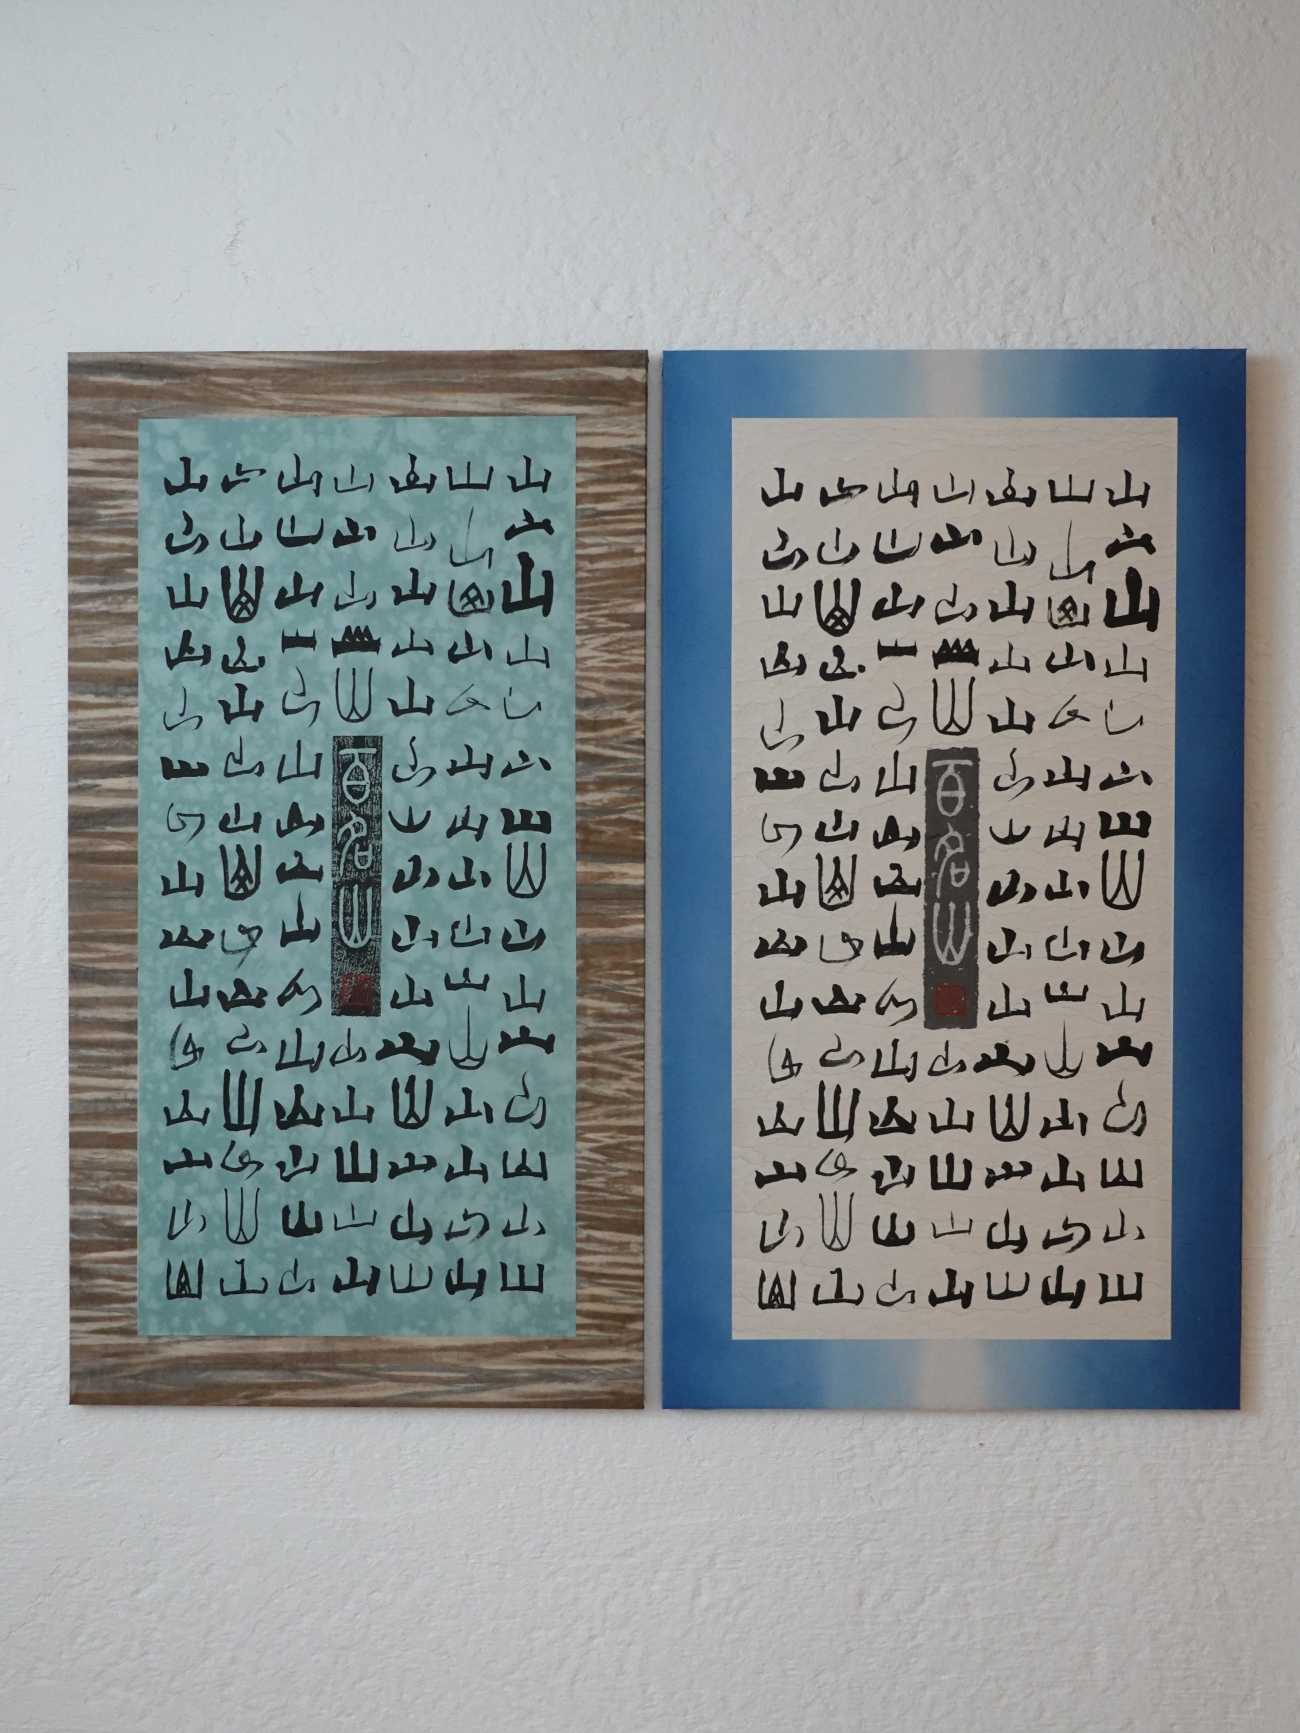 山山山山山山山山山山山山山山山
山山山山山山山山山山山山山山山
山山山山山山山山山山山山山山山
山山山山山
百名山
山山山山山
山山山山山山山山山山山山山山山
山山山山山山山山山山山山山山山
山山山山山山山山山山山山山山山
山山山山山山山山山山山山山山山
山山山山山山山山山山山山山山山
山山山山山山山山山山山山山山山
山山山山山
百名山
山山山山山
山山山山山山山山山山山山山山山
山山山山山山山山山山山山山山山
山山山山山山山山山山山山山山山